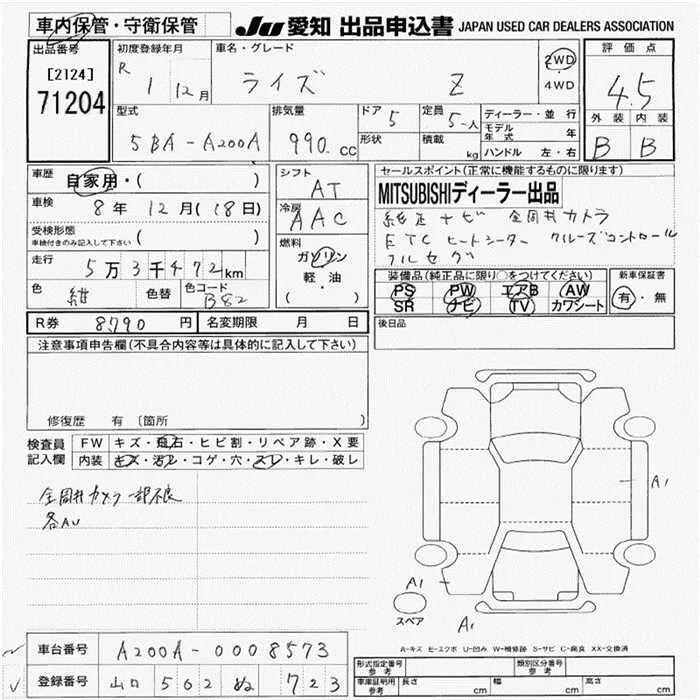 車内保管・守衛保管
JU 愛知 出品申込書 JAPAN USED CAR DEALERS ASSOCIATION
出品番号
[2124]
71204
初度登録年月
R 1 12月
車名・グレード
ライズ Z
2WD
4WD
評価点
4.5
外装 内装
B B
型式
5BA-A200A
排気量
990 cc
ドア 5
形状
定員 5-人
積載 kg
ディーラー・並行
モデル年式 年
ハンドル 左・右
車歴
自家用・( )
車検
8年 12月(18日)
受検形態
車検付きのみ記入して下さい ( )
走行
5万3千472km
色
紺
色替
色コード
B82
シフト
AT
冷房
AAC
燃料
ガソリン
軽・油
( ・ )
セールスポイント(正常に機能するものに限ります)
MITSUBISHIディーラー出品
純正ナビ 全周囲カメラ
ETC ヒートシーター クルーズコントロール
フルセグ
装備品(純正品に限り○をつけてください)
PS PW エアB AW
SR ナビ TV カワシート
新車保証書
有・無
R券 8790円
名変期限 月 日
後日品
注意事項申告欄(不具合内容等は具体的に記入して下さい)
修復歴 有 〔箇所 〕
検査員記入欄
FW キズ・飛石・ヒビ割・リペア跡・X要
内装 キズ・汚レ・コゲ・穴・スレ・キレ・破レ
全周囲カメラ一部不良
各AU
A1
A1
A1
スペア
A-キズ E-エクボ U-凹み W-補修跡 S-サビ C-腐食 XX-交換済
車台番号 A200A-0008573
登録番号 山口 502 ぬ 723
形式指定番号 参考
類別区分番号 参考
車庫証明用 参考
長さ cm 幅 cm 高さ cm